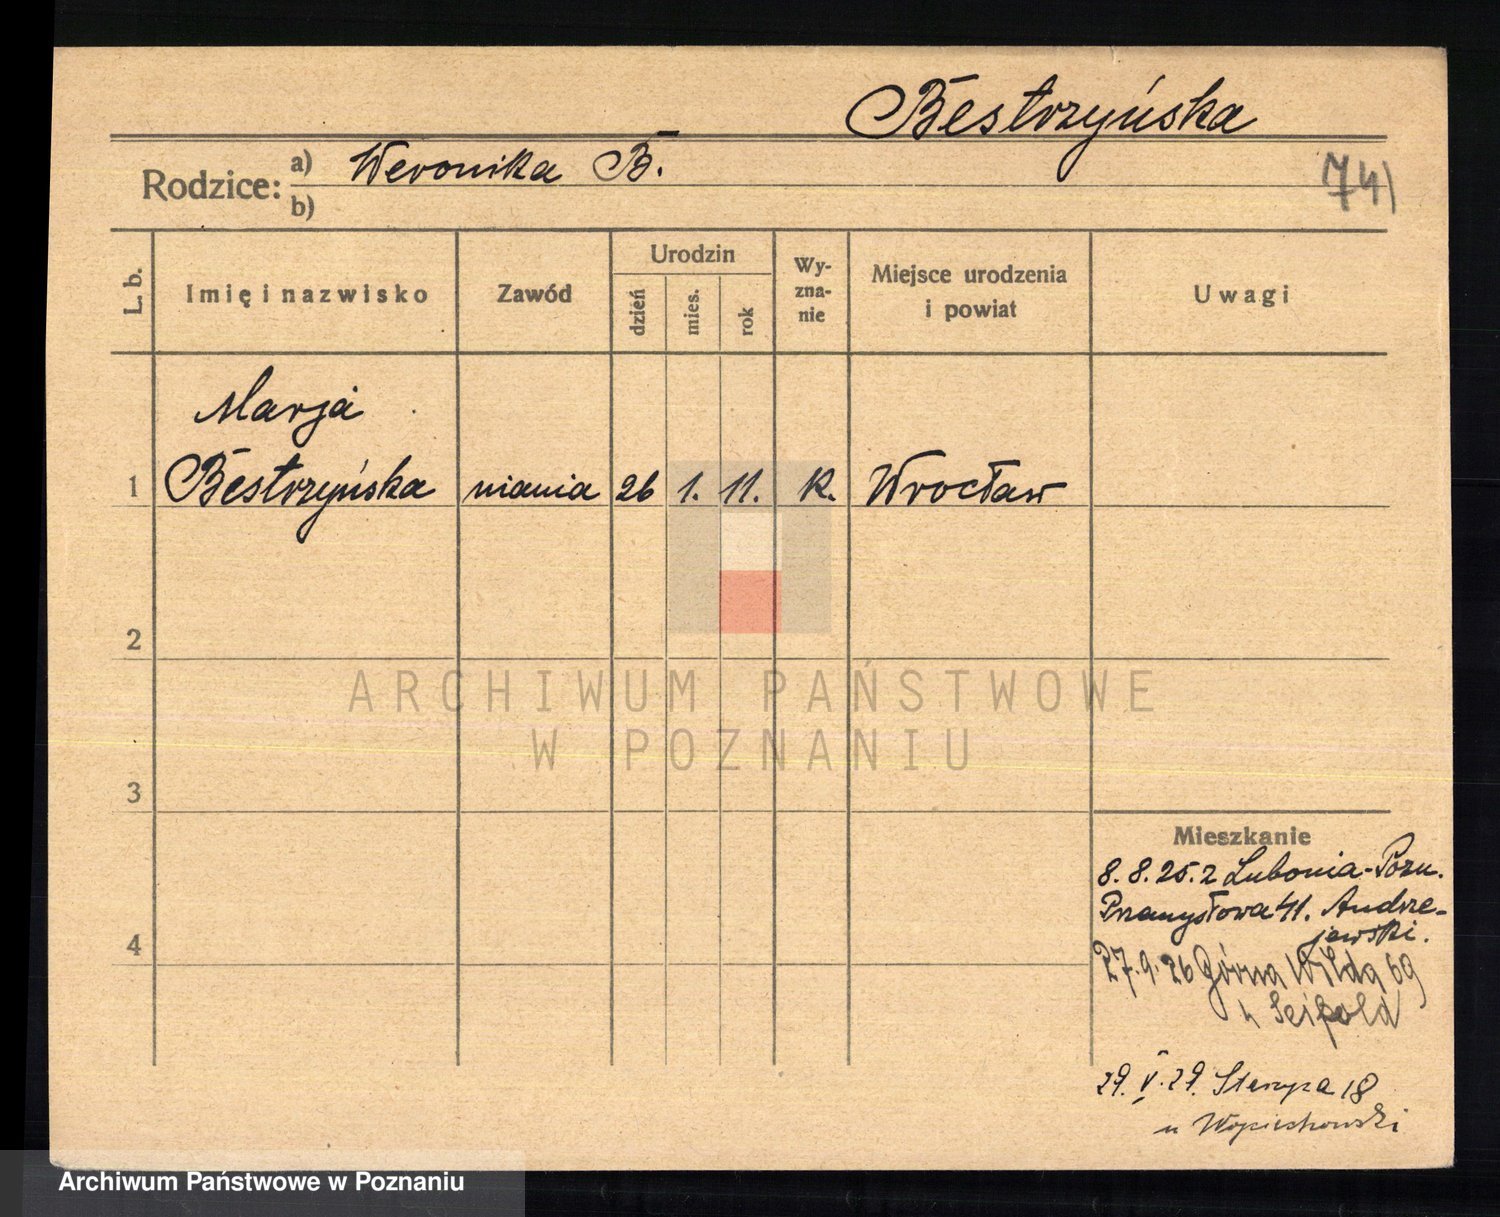 Bestrzyńska
Rodzice: a) Weronika B.
b)
74)
L. b.
Imię i nazwisko
Zawód
Urodzin
dzień
mies.
rok
Wy-
zna-
nie
Miejsce urodzenia
i powiat
Uwagi
Marja
1 Bestrzyńska niania 26 1. 11. K. Wrocław
2
ARCHIWUM PAŃSTWOWE
W POZNANIU
3
Mieszkanie
8. 8. 25. z Lubonia - Pozn.
Przemysłowa 41. Andrze-
jewski.
4
27. 9. 26 Górna Wilda 69
u Seipold
29. V. 29. 18
u
Archiwum Państwowe w Poznaniu